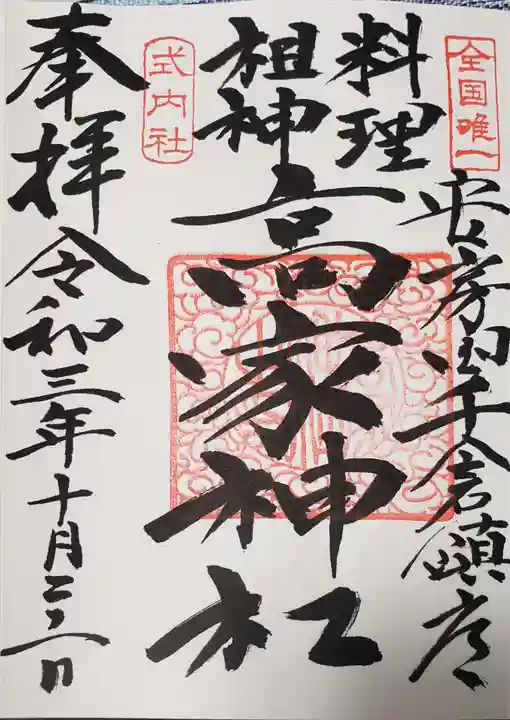 全国唯一
安房国千倉鎮座
料理
祖神
高家神社
式内社
奉拝
令和三年十月二八日